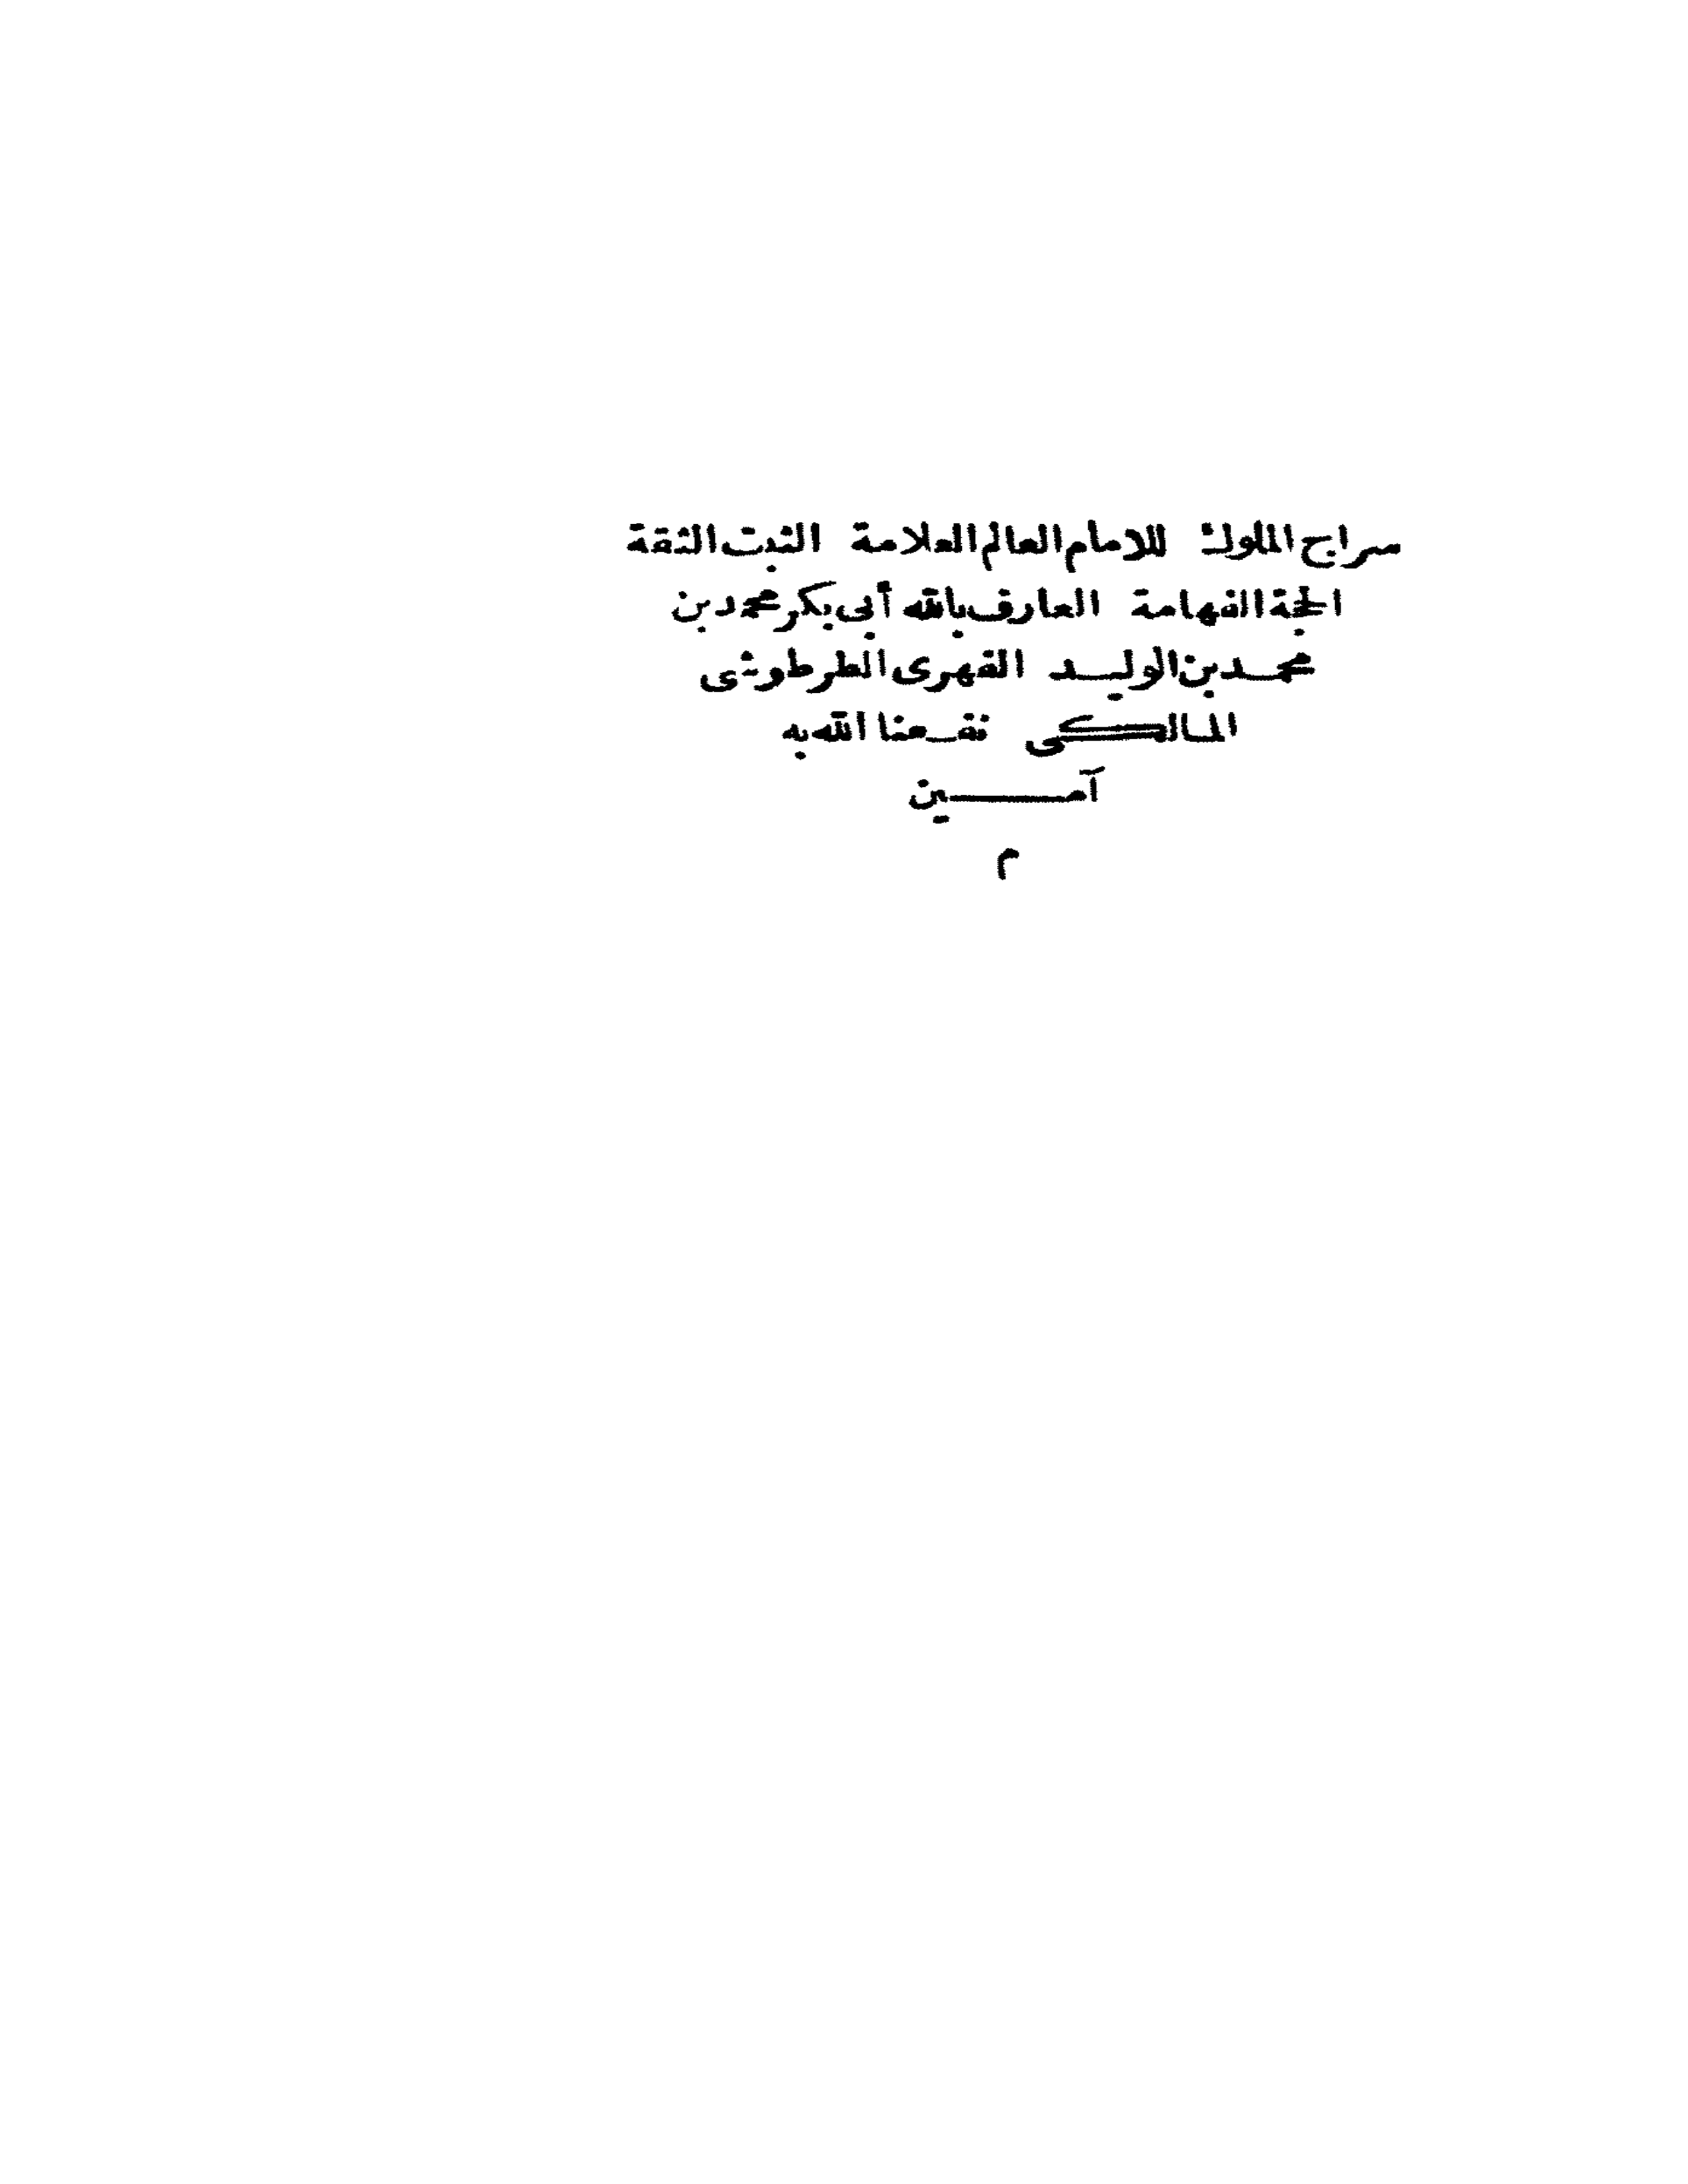 سراج الملوك للامام العالم العلامة الثبت الثقة
الحجة الفهامة العارف بالله أبى بكر محمد بن
محمد بن الوليد الفهرى الطرطوشى
المالكى نفعنا الله به
آمين
م